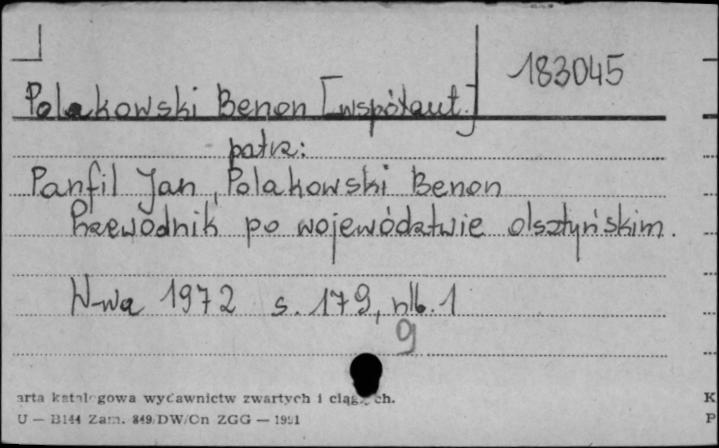 183045
Polakowski Benon [współaut.]
patrz:
Panfil Jan, Polakowski Benon
Przewodnik po województwie olsztyńskim.
W-wa 1972 s. 179, nlb. 1
9
arta katalogowa wydawnictw zwartych i ciągłych.
U — B144 Zam. 849/DW/Cn ZGG — 1951
K
P